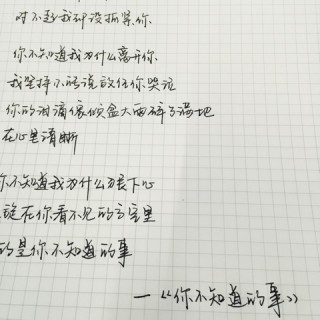 对不起我却没抓紧你
你不知道我为什么离开你
我坚持不能说放任你哭泣
你的泪滴像倾盆大雨碎了满地
在心里清晰
你不知道我为什么狠下心
旋在你看不见的高空里
的是你不知道的事
—《你不知道的事》